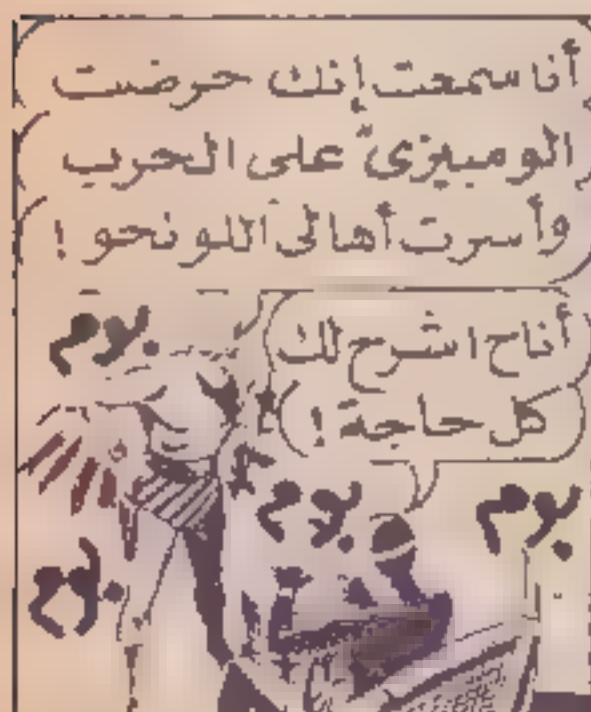 أنا سمعت إنك حرضت
الومبيزي على الحرب
وأسرت أهالى اللونجو!
بوم
أناح اشرح لك
كل حاجة!
بوم
بوم
بوم